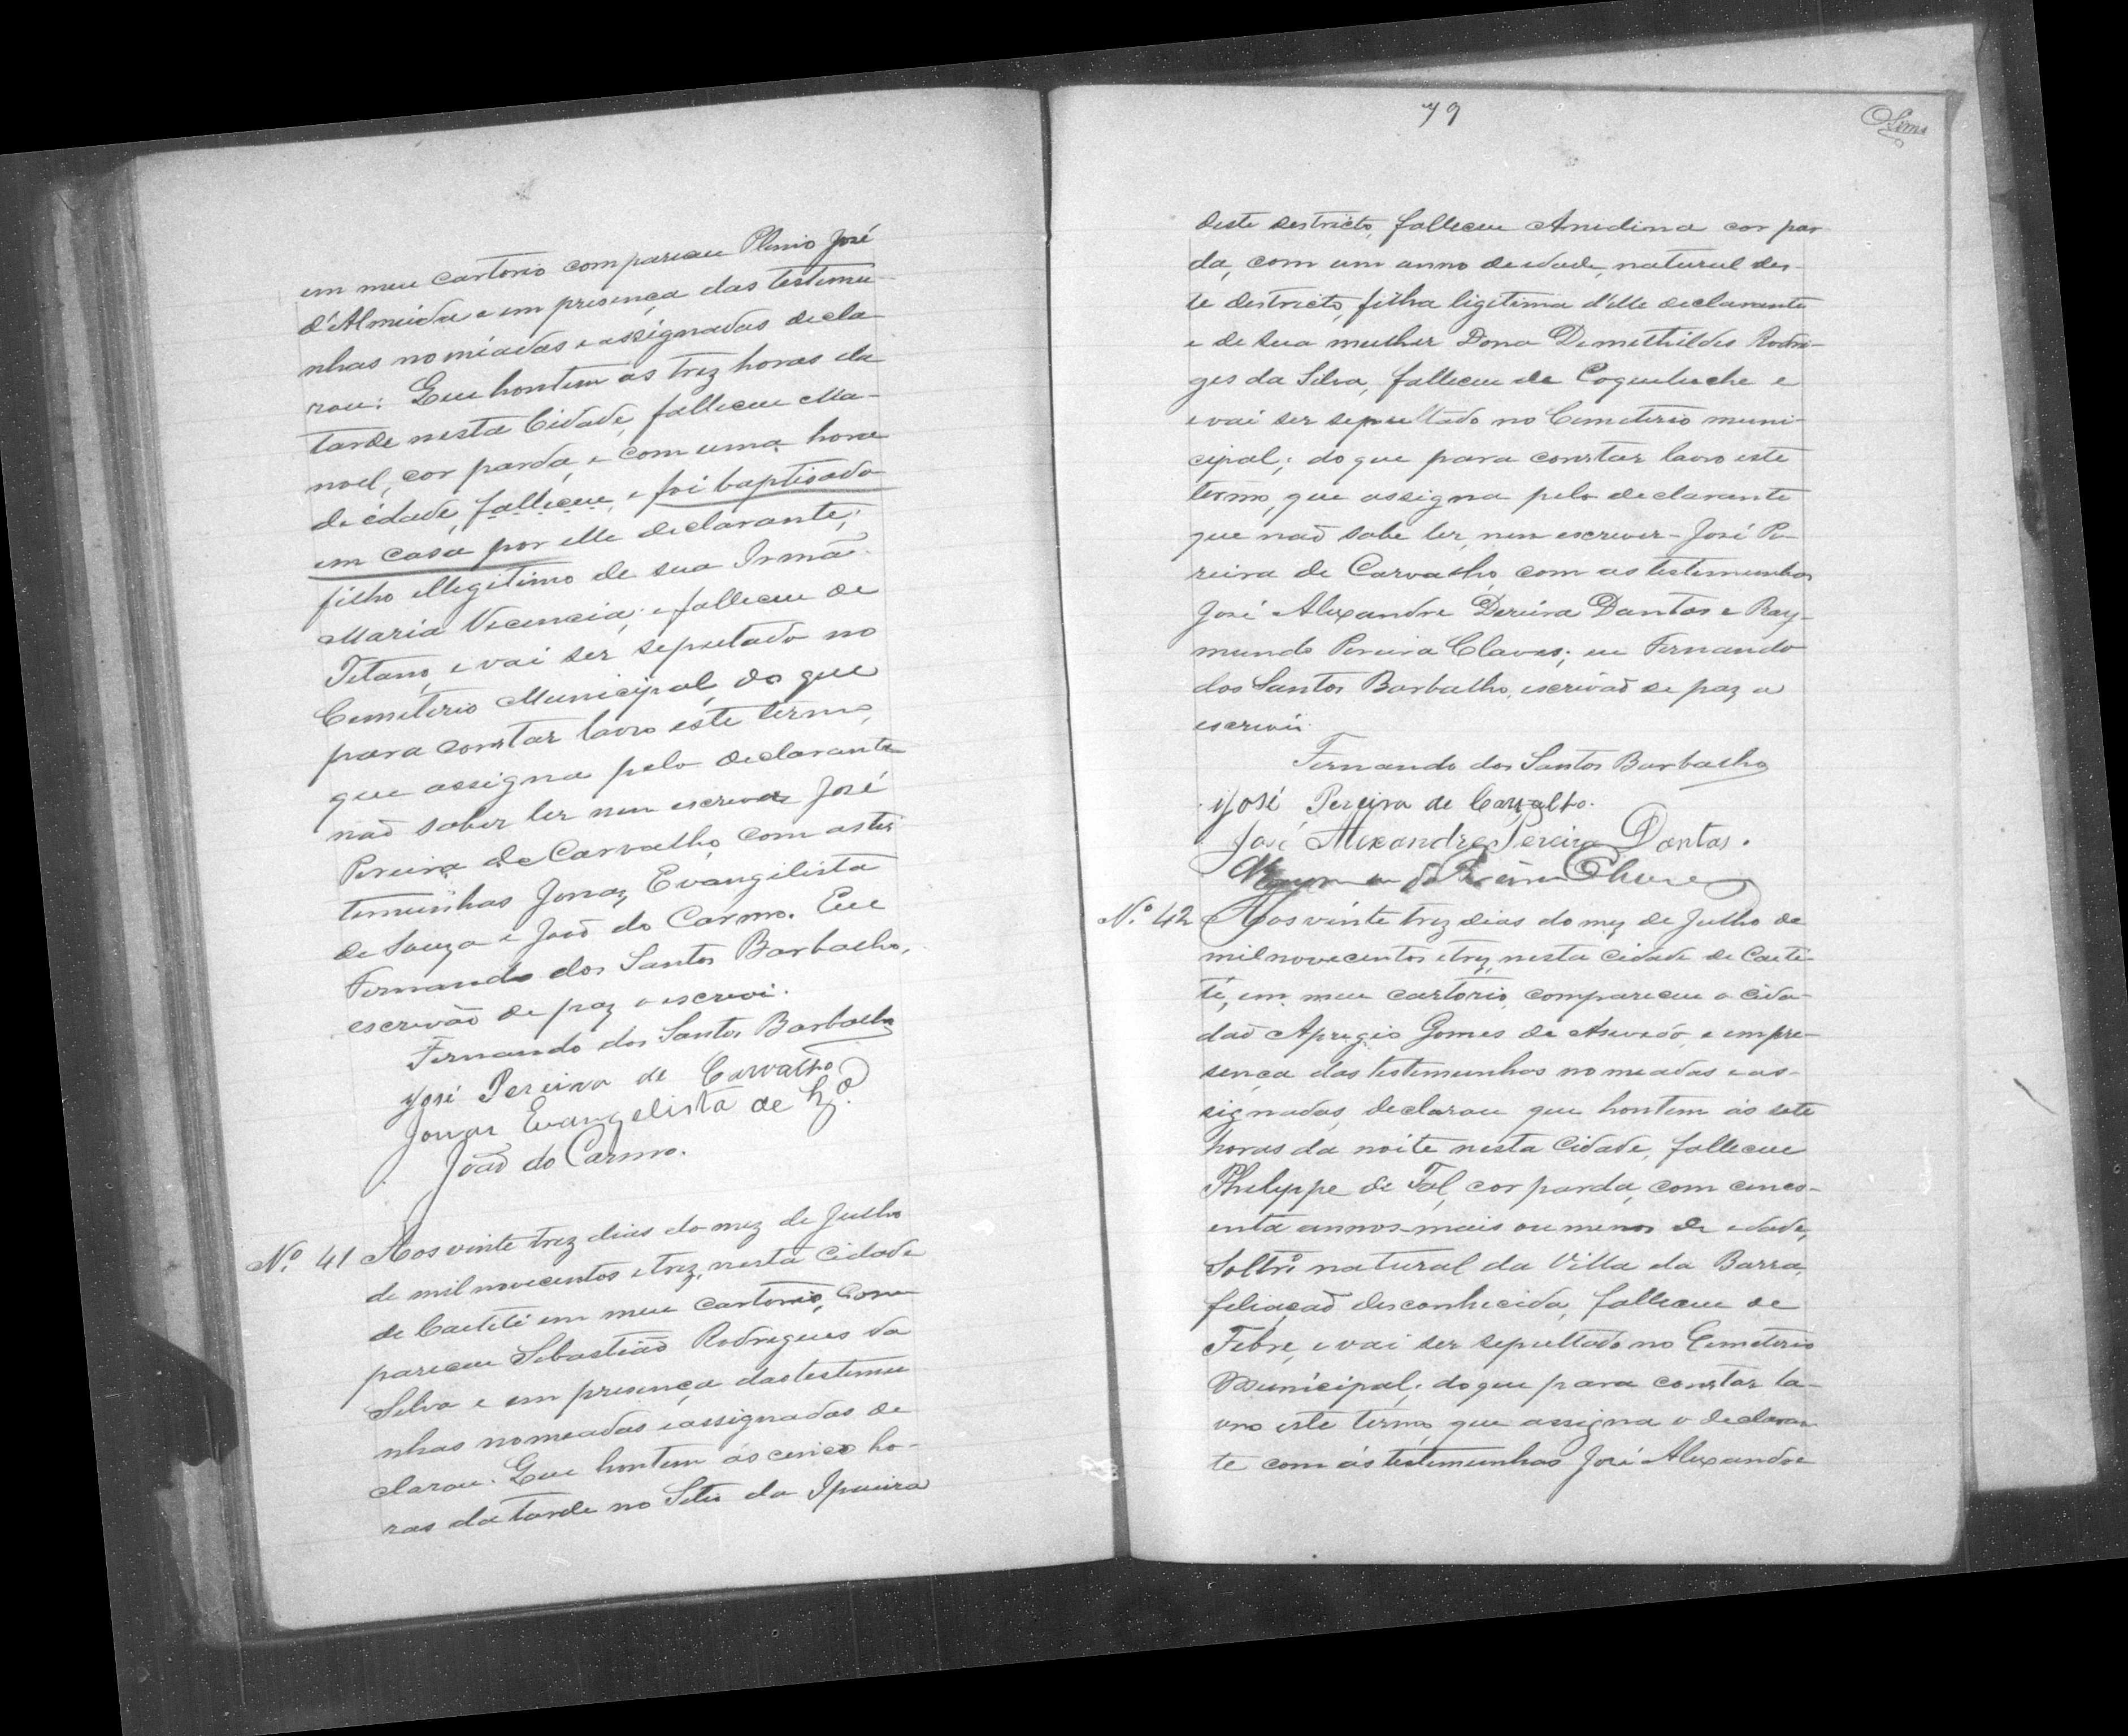 em meu cartorio compareceu Plinio José
d'Almeida e em presença das testemu-
nhas nomiadas e assignadas decla
rou: Que hontem as trez horas da
tarde nesta Cidade, falleceu Ma-
noel, cor parda, e com uma hora
de édade, falleceu, e foi baptisado
em casa por elle declarante;
filho illegitimo de sua Irmã
Maria Vicencia; e falleceu de
Tetano, e vai ser sepultado no
Cemiterio Municipal, do que
para constar lavro este termo,
que assigna pelo declarante
naõ saber ler nem escrever José
Pereira de Carvalho, com as tes
temunhas Jonas Evangelista
de Souza e Joaõ do Carmo. Eu
Fernando dos Santos Barbalho,
escrivaõ de paz o escrevi.
Fernando dos Santos Barbalho
José Pereira de Carvalho
Jonas Evangelista de
Joaõ do Carmo.
Nº 41 Aos vinte trez dias do mez de Julho
de mil novecentos e trez, nesta Cidade
de Caeteté em meu cartorio, Com
pareceu Sebastiaõ Rodrigues da
Silva e em presença das testemu
nhas nomeadas e assignadas de
clarou. Que hontem ás cinco ho-
ras da tarde no Sitio da Ipueira
79
deste destricto, falleceu Anedina cor par
da, com um anno de edade, natural des-
te destricto, filha ligitima d'elle declarante
e de sua mulher Dona Demethildes Rodri-
ges da Silva, falleceu de Coqueluche e
e vai ser sepultado no Cemiterio muni-
cipal; do que para constar lavro este
termo, que assigna pelo declarante
que naõ sabe ler, nem escrever - José Pe-
reira de Carvalho, com as testemunhas
José Alexandre Pereira Dantas e Ray-
mundo Pereira Chaves; eu Fernando
dos Santos Barbalho, escrivaõ de paz o
escrevi.
Fernando dos Santos Barbalho
José Pereira de Carvalho.
José Alexandre Pereira Dantas.
Nº 42 Aos vinte trez dias do mez de Julho de
mil novecentos e trez, nesta Cidade de Caete-
té, em meu cartorio, compareceu o cida-
daõ Aprigio Gomes de Asevedo, e em pre-
sença das testemunhas nomeadas e as-
signadas, declarou que hontem ás sete
horas da noite nesta Cidade, falleceu
Phelyppe de Tal, cor parda, com cinco-
enta annos mais ou menos de edade,
Soltrº natural da Villa da Barra,
feliaçaõ desconhecida, falleceu de
Febre, e vai ser sepultado no Cemiterio
Municipal; do que para constar la-
vro este termo, que assigna o declaran
te com ás testemunhas José Alexandre